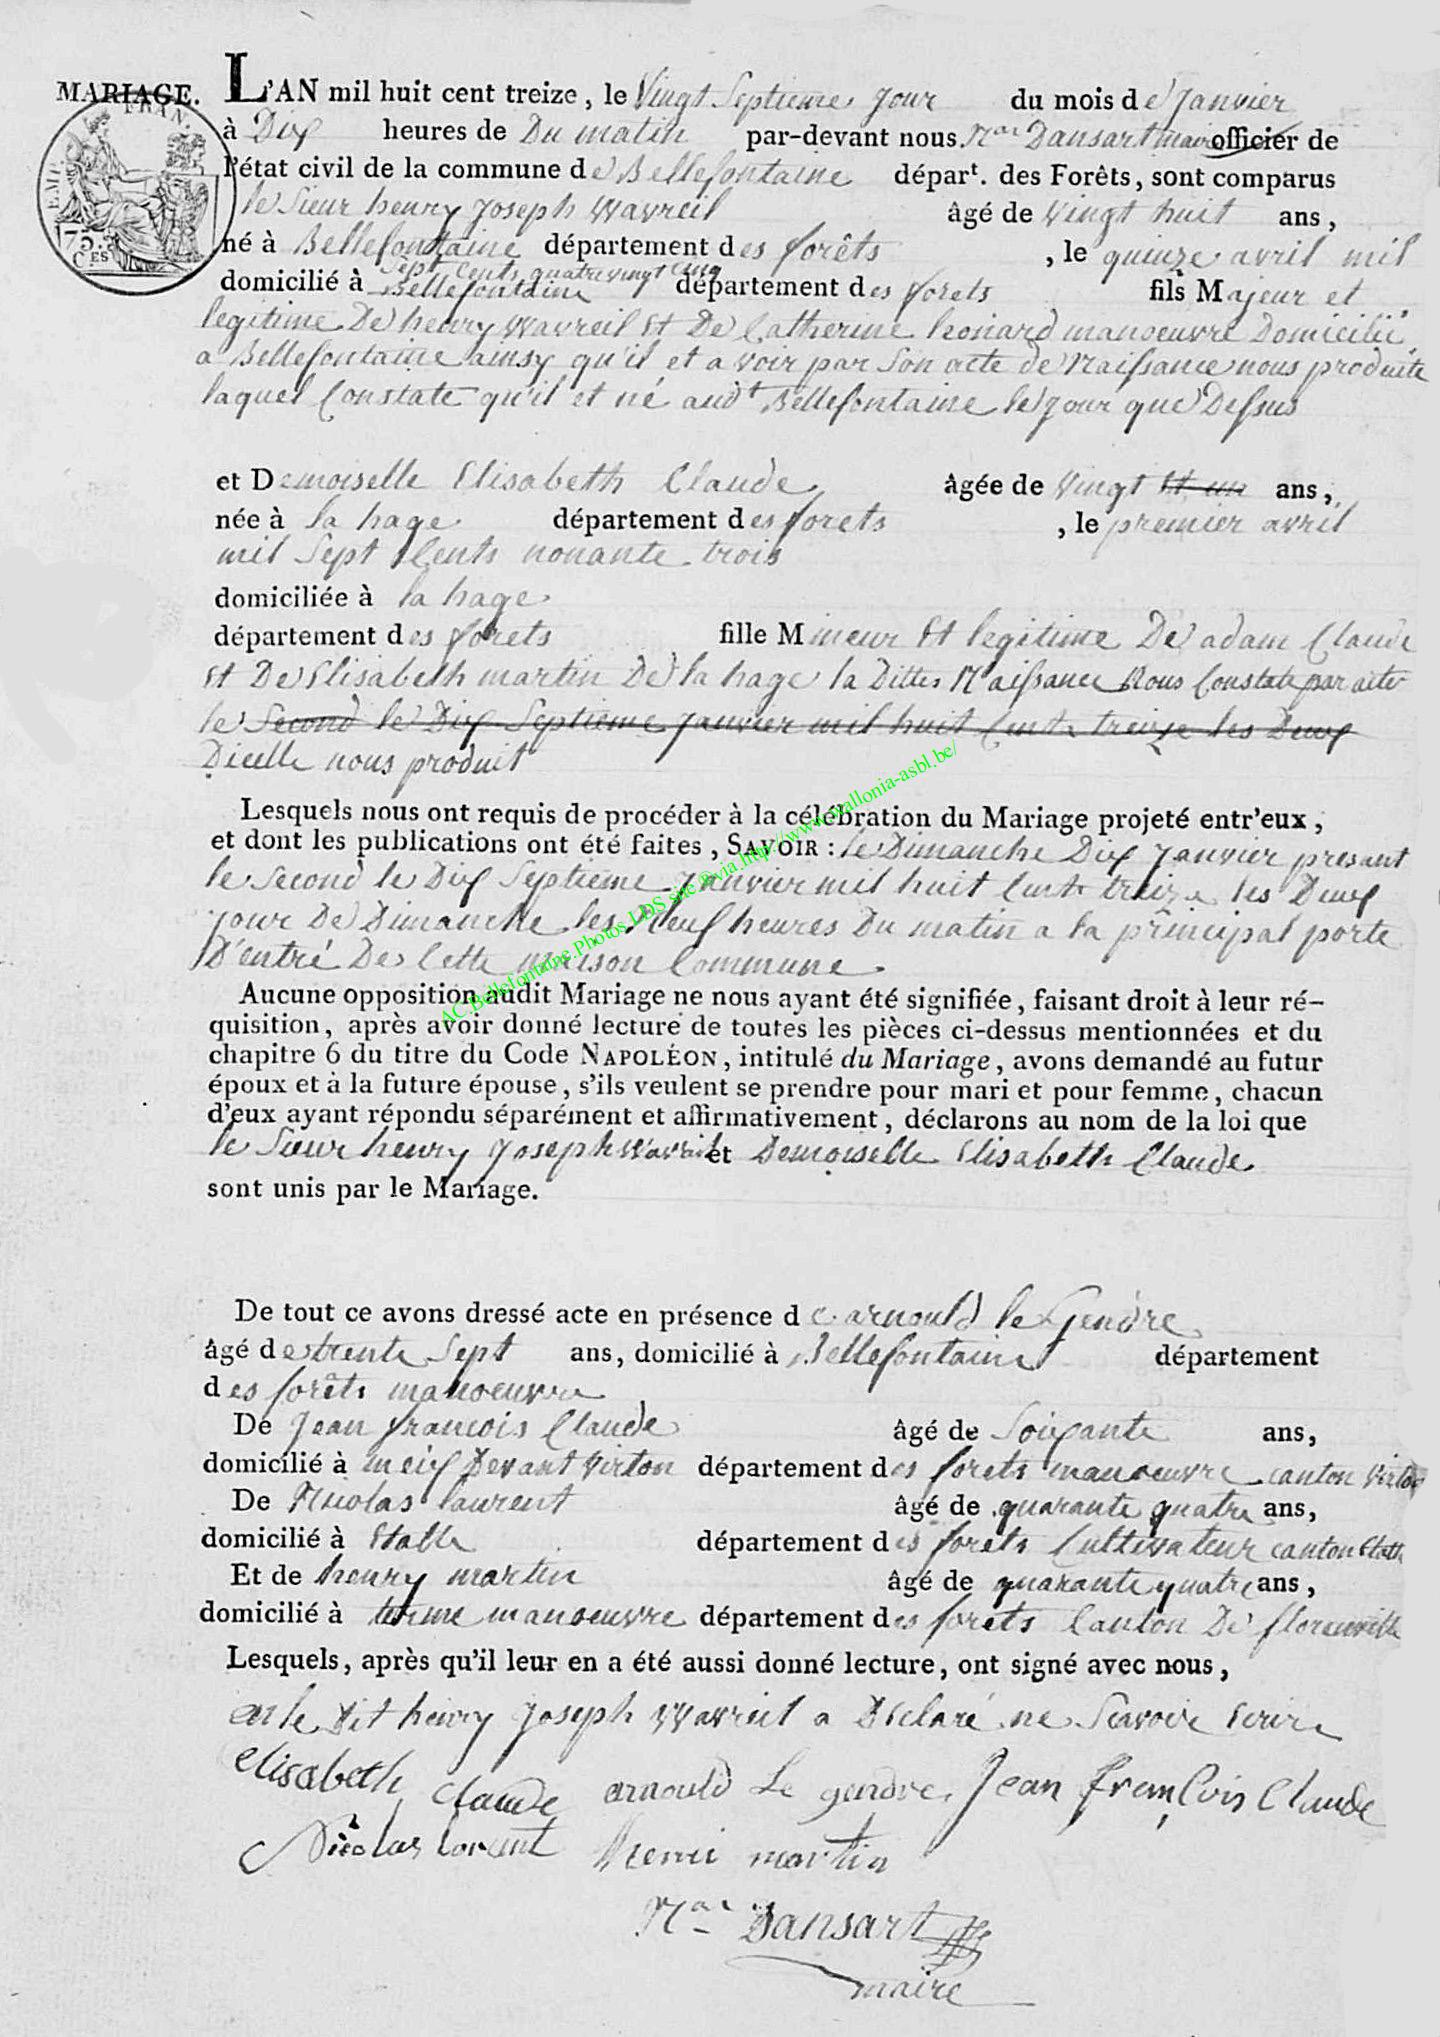 MARIAGE.
L'AN mil huit cent treize, le Vingt Septieme jour du mois de Janvier
à Dix heures de Du matin par-devant nous Nas Dansart maire officier de
l'état civil de la commune de Bellefontaine départ. des Forêts, sont comparus
le Sieur henry Joseph Wavreil âgé de Vingt huit ans,
né à Bellefontaine département des forêts, le quinze avril mil
Sept Cents quatrevingt cinq
domicilié à Bellefontaine département des forets fils Majeur et
legitime De henry Wavreil Et De Catherine leonard manoeuvre Domicilié
a Bellefontaine ainsy qu'il et a voir par Son acte de Naissance nous produite
laquel Constate qu'il et né audt Bellefontaine le jour que Dessus
et Demoiselle Elisabeth Claude âgée de Vingt Et un ans,
née à la hage département des forets, le premier avril
mil Sept Cents nonante trois
domiciliée à la hage
département des forets fille Mineur Et legitime De adam Claude
Et De Elisabeth martin De la hage la Ditte Naissance Nous Constate par acte
le Second le Dix Septieme Janvier mil huit Cent treize les Deux
Dicelle nous produit
Lesquels nous ont requis de procéder à la célébration du Mariage projeté entr'eux,
et dont les publications ont été faites, SAVOIR : le Dimanche Dix Janvier present
le Second le Dix Septieme Janvier mil huit Cent treize les Deux
jour De Dimanche les Neuf heures Du matin a la principal porte
D'entré De Cette maison Commune
Aucune opposition audit Mariage ne nous ayant été signifiée, faisant droit à leur ré-
quisition, après avoir donné lecture de toutes les pièces ci-dessus mentionnées et du
chapitre 6 du titre du Code NAPOLÉON, intitulé du Mariage, avons demandé au futur
époux et à la future épouse, s'ils veulent se prendre pour mari et pour femme, chacun
d'eux ayant répondu séparément et affirmativement, déclarons au nom de la loi que
le Sieur henry Joseph Wavreil et Demoiselle Elisabeth Claude
sont unis par le Mariage.
De tout ce avons dressé acte en présence de arnould le Gendre
âgé de trente Sept ans, domicilié à Bellefontaine département
des forêts manoeuvre
De Jean francois Claude âgé de Soixante ans,
domicilié à meix Devant Virton département des forets manoeuvre canton Virton
De Nicolas laurent âgé de quarante quatre ans,
domicilié à Etalle département des forets Cultivateur canton Etalle
Et de henry martin âgé de quarante quatre ans,
domicilié à terme manoeuvre département des forets Canton De florenville
Lesquels, après qu'il leur en a été aussi donné lecture, ont signé avec nous,
et le Dit henry Joseph Wavreil a Déclaré ne Scavoir Ecrire
elisabeth Claude arnould Le gendre Jean François Claude
Nicolas lorent Henri martin
Nas Dansart
maire
EMP. FRAN.
75. CES
AC.Bellefontaine.Photos LDS site ® via http://www.wallonia-asbl.be/